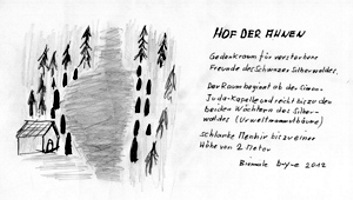 HOF DER AHNEN
Gedenkraum für verstorbene
Freunde des Schwarzen Silberwaldes.
Der Raum beginnt ab der Simon-
Juda-Kapelle und reicht bis zu den
beiden Wächtern des Silber-
waldes (Urweltmammutbäume)
schlanke Menhir bis zu einer
Höhe von 2 Meter
Biennale 2012